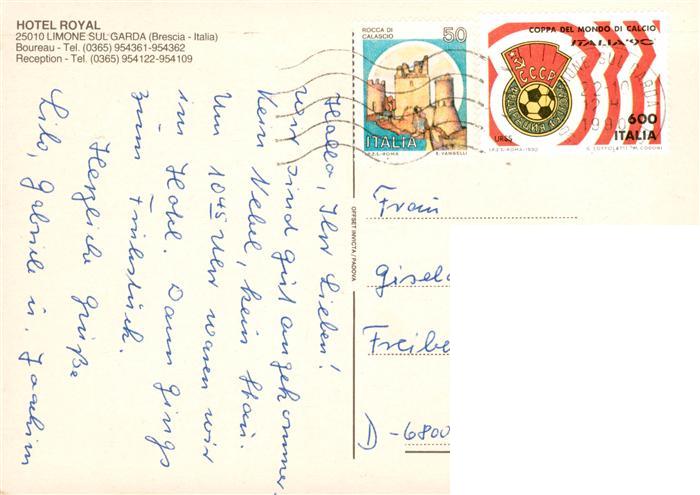 HOTEL ROYAL
25010 LIMONE SUL GARDA (Brescia - Italia)
Boureau - Tel. (0365) 954361-954362
Reception - Tel. (0365) 954122-954109
Hallo, Ihr Lieben!
Wir sind gut angekommen.
Kein Nebel, kein Stau.
Um 10 45 Uhr waren wir
im Hotel. Dann gings
zum Frühstück.
Herzliche Grüße
Lilo, Gabriele u. Joachim
OFFSET INVICTA / PADOVA
ROCCA DI
CALASCIO
50
ITALIA
I.P.Z.S. - ROMA E. VANGELLI
COPPA DEL MONDO DI CALCIO
ITALIA '90
C.C.C.P.
600
URSS ITALIA
I.P.Z.S. - ROMA - 1990
1990
Frau
Gisel
Freibe
D - 6800